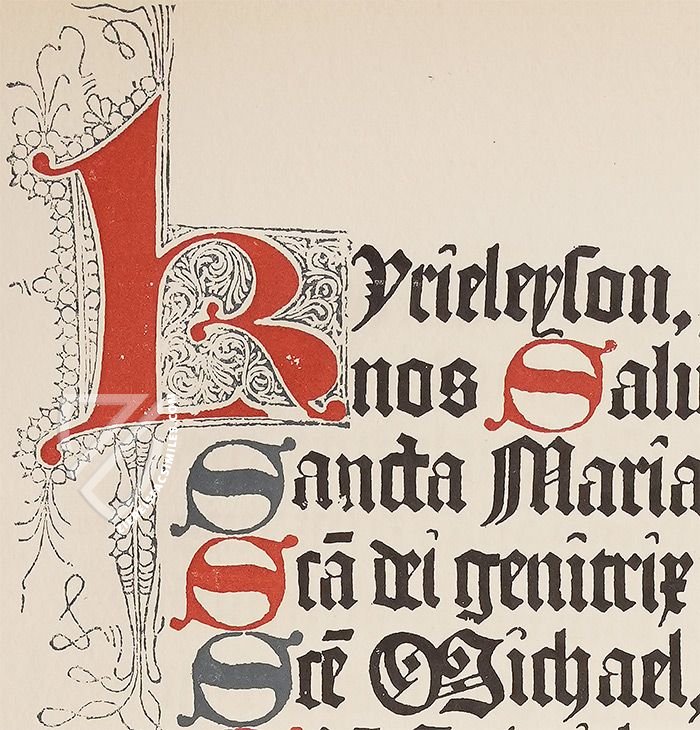 Kyrieleyson,
nos Salv
Sancta Maria
Scā dei genitrix
Scē Michael,